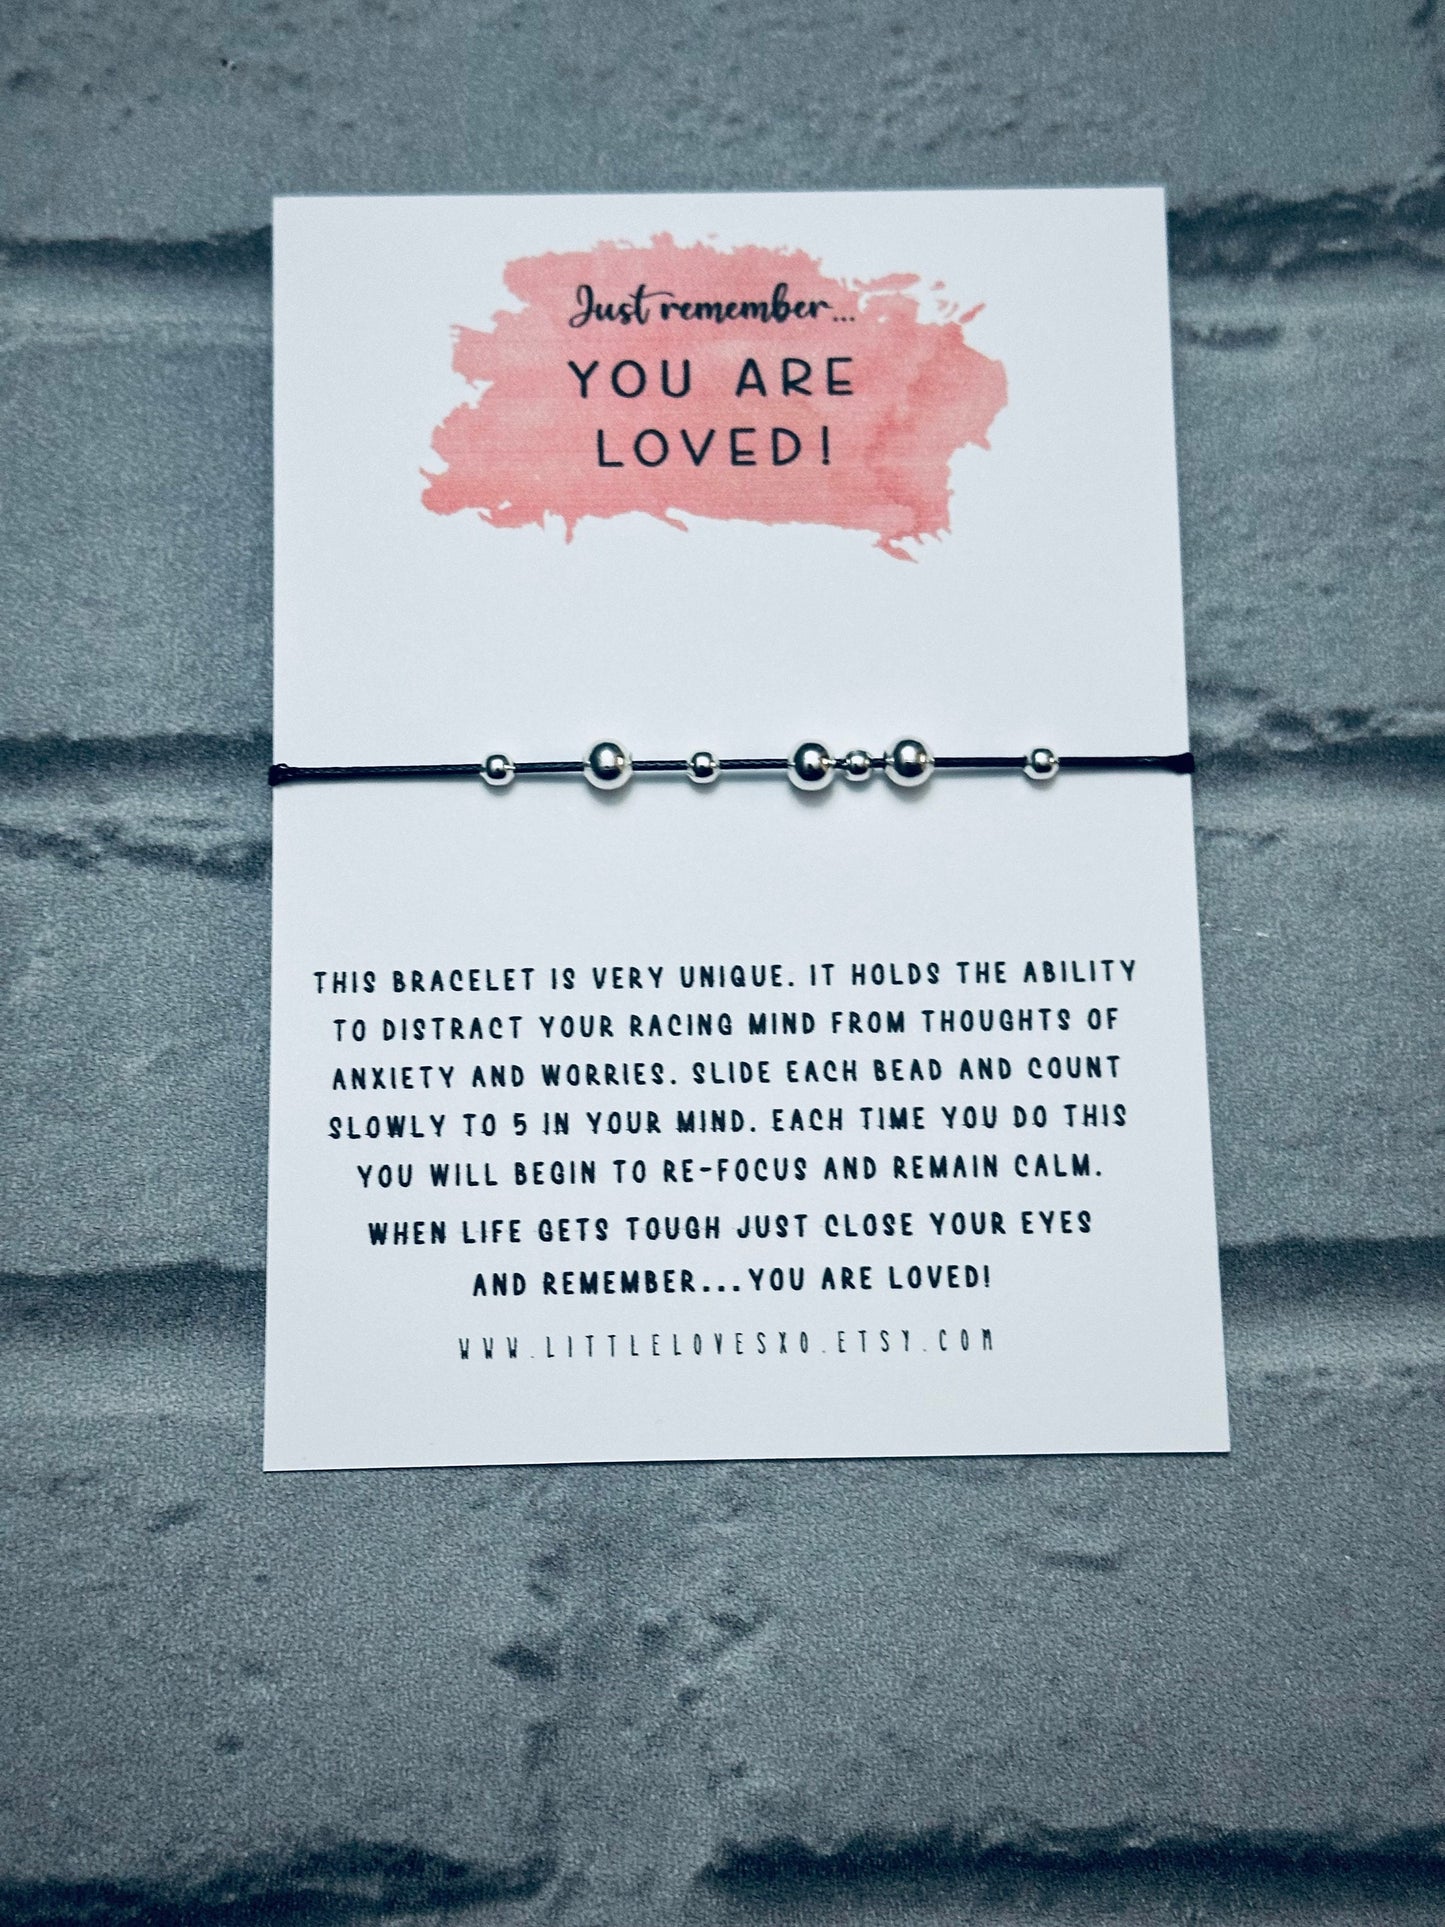 Just remember...
YOU ARE
LOVED!
THIS BRACELET IS VERY UNIQUE. IT HOLDS THE ABILITY
TO DISTRACT YOUR RACING MIND FROM THOUGHTS OF
ANXIETY AND WORRIES. SLIDE EACH BEAD AND COUNT
SLOWLY TO 5 IN YOUR MIND. EACH TIME YOU DO THIS
YOU WILL BEGIN TO RE-FOCUS AND REMAIN CALM.
WHEN LIFE GETS TOUGH JUST CLOSE YOUR EYES
AND REMEMBER...YOU ARE LOVED!
WWW.LITTLELOVESXO.ETSY.COM